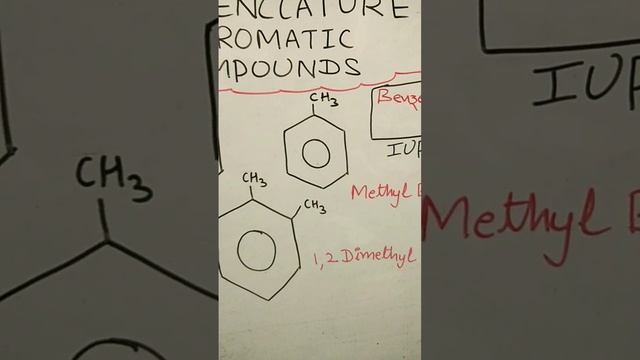 ENCLATURE
ROMATIC
MPOUNDS
CH3
Benze
IUP
Methyl B
CH3
CH3
1,2 Dimethyl
CH3
IUP
Methyl B